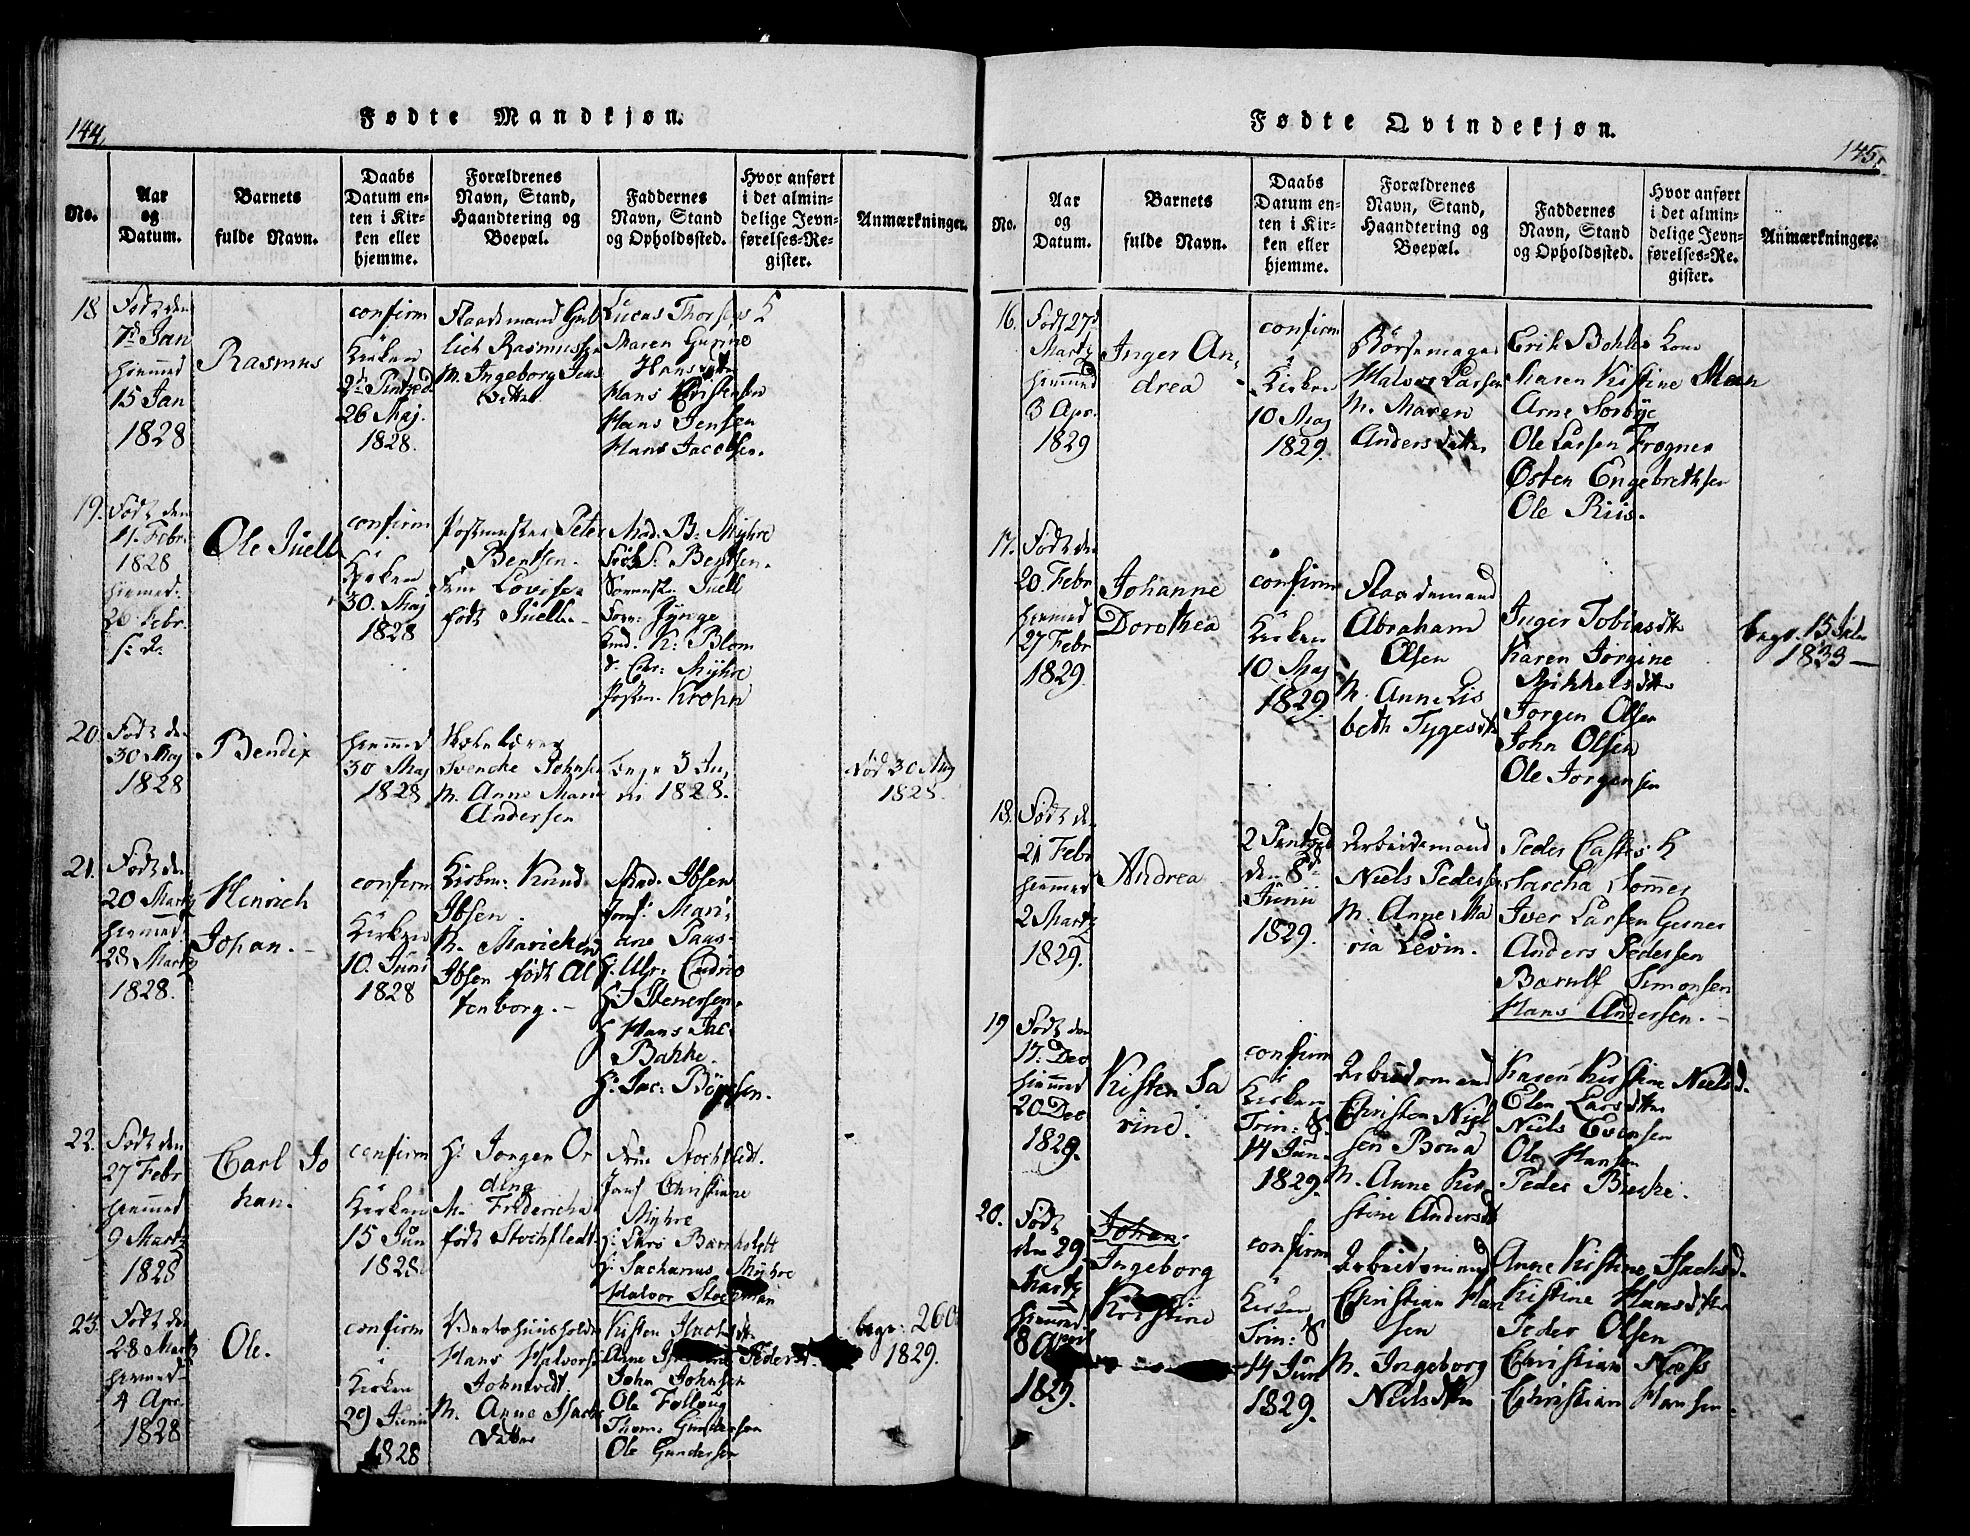 144.
Fødte Mandkjøn.
No.
Aar
og
Datum.
Barnets
fulde Navn.
Daabs
Datum en-
ten i Kir-
ken eller
hjemme.
Forældrenes
Navn, Stand,
Haandtering og
Boepæl.
Faddernes
Navn, Stand
og Opholdssted.
Hvor anført
i det almin-
delige Jevn-
førelses-Re-
gister.
Anmærkninger.
18
Født den
7d Jan
hiemmed
15 Jan
1828
Rasmus
confirm
i
Kirken
2d Pintzed
26 Maj.
1828.
M. Ingeborg Jens
datter
Lucas Thorsens K
Maren Gurine
Hansdttr
Hans Christensen
Hans Jensen
Hans Jacobsen.
19.
Født den
11. Febr.
1828
hiemmed.
26 Febr.
Ole Juell
confirm
i
Kirken
30. Maj
1828
Postmester Peter
Bentsen.
Lovise
født Juell.
Mad. B. Myhre
Bentsen.
Juell
K. Blom
Myhre
Krohn
20.
Født den
30 Maj
1828
Bendix
hiemmed
30 Maj
1828
Svenche Johnsen
M. Anne Marie
Andersen
Begr. 3 Ju
ni 1828.
død 30 Maj
1828.
21.
Født den
20 Martz
hiemmed
28 Martz
1828.
Hinrich
Johan.
confirm
i
Kirken
10. Juni
1828
Kiøbm: Knud
Ibsen.
M. Marichen
Ibsen født Al
tenborg.
Mad. Ibsen
Jomf. Mari
ane Paus.
H. Ulr. Cudrio
H. Stenersen
H. Hans Jac.
Bakke.
H. Jac: Bøyesen.
22.
Født den
27 Febr
hiemmed
9 Martz
1828
Carl Jo
han.
confirm
i
Kirken
15 Jun
1828
H. Jørgen Or
ding
M. Fridericha
født Stochfledt
Frue Stochfledt.
Jomf Christiane
Myhre
H. Lars Barnholdt
H. Zacharius Myhre
Halvor Stochman
23.
Født den
28 Martz
hiemmed
4 Apr.
1828
Ole.
confirm
i
Kirken
29 Junii
1828
Hans Halvors
M. Anne Isachs
datter
Kisten Isachsdtr
Anne
John Johnsen
Ole
Thom: Gundersen
Ole Gundersen
begr. 26
1829.
145.
Fødte Qvindekjøn.
No.
Aar
og
Datum.
Barnets
fulde Navn.
Daabs
Datum en-
ten i Kir-
ken eller
hjemme.
Forældrenes
Navn, Stand,
Haandtering og
Boepæl.
Faddernes
Navn, Stand
og Opholdssted.
Hvor anført
i det almin-
delige Jevn-
førelses-Re-
gister.
Anmærkninger.
16.
Født 27d
Martz
hiemmed
3 Apr.
1829
Inger An
drea
confirm
i
Kirken
10 Maj
1829.
Børsemager
Halvor Larsen
M. Maren
Andersdatter
Erik Bohlers Kone
Maren Kistine Moen
Arne Sorbye
Ole Larsen Frogner
Østen Engebrethsen
Ole Riis.
17.
Født den
20 Febr
hiemmed
27 Febr
1829.
Johanne
Dorothea
confirm
i
Kirken
10 Maj
1829.
Flaademand
Abraham
Olsen
M. Anne Lis
beth Tygesdtr
Inger Tobiasdtr
Karen Jorgine
Mikkelsdtr
Jorgen Olsen
John Olsen
Ole Jorgensen
begr. 15
18.
Født den
21 Febr
hiemmed
2 Martz
1829.
Andrea
2 Pintzed
den 8d
Junii
1829.
Arbeidsmand
Niels Pedersen
M. Anne Ma
ria Levin.
Peder Castes K
Iver Larsen
Anders Pedersen
Simonsen
Hans Andersen.
19
Født den
17. Dec
hiemmed
20 Dec
1829.
Kisten Sa
rine.
confirm
i
Kirken
Trin: S.
14 Jun.
1829.
Arbeidsmand
Christen Niel
sen
M. Anne Kir
stine Andersdtr
Karen Kirstine Nielsd.
Elen Larsdtr
Niels Evensen
Ole Hansen
Peder
20.
Født
den 29
Martz
hiemmed
8 April
1829.
Johan.
Ingeborg
Kirstine
confirm
i
Kirken
Trin: S
14 Jun
1829.
Arbeidsmand
Christian Han
sen
M. Ingeborg
Nielsdtr
Anne Kistine Isachsd.
Kistine Hansdtr
Peder Olsen
Christian Næss
Christian Hansen.